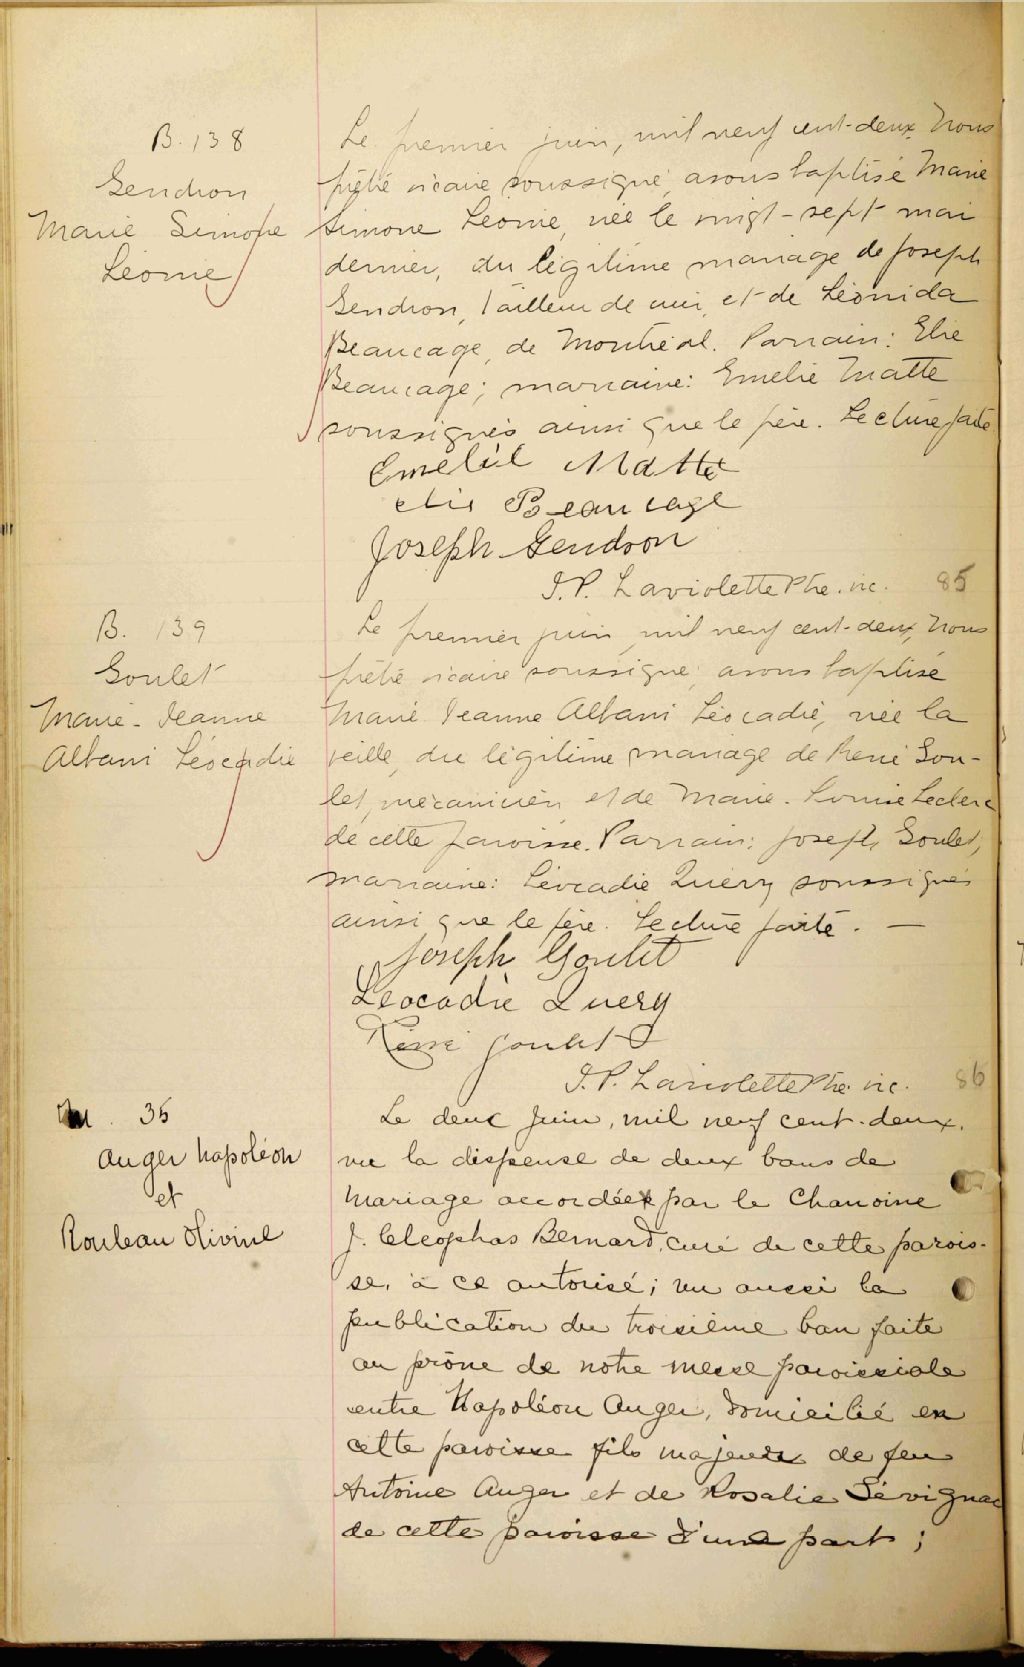 B. 138
Gendron
Marie Simone
Léonie
Le premier juin, mil neuf cent-deux, Nous
prêtre vicaire soussigné, avons baptisé Marie
Simone Léonie, née le vingt-sept mai
dernier, du légitime mariage de Joseph
Gendron, tailleur de cuir, et de Léonida
Beaucage, de Montréal. Parrain: Elie
Beaucage; marraine: Emelie Matte
soussignés ainsi que le père. Lecture faite
Emelie Matte
Elie Beaucage
Joseph Gendron
J.P. Laviolette Ptre. vic. 85
B. 139
Goulet
Marie-Jeanne
Albani Léocadie
Le premier juin, mil neuf cent-deux, Nous
prêtre vicaire soussigné, avons baptisé
Marie Jeanne Albani Léocadie, née la
veille, du légitime mariage de René Gou-
let, mécanicien et de Marie-Louise Leclerc
de cette paroisse. Parrain: Joseph Goulet,
marraine: Léocadie Quéry soussignés
ainsi que le père. Lecture faite. —
Joseph Goulet
Léocadie Query
René Goulet
J.P. Laviolette Ptre. vic. 86
M. 35
Auger Napoléon
et
Rouleau Olivine
Le deux Juin, mil neuf cent-deux,
vu la dispense de deux bans de
mariage accordée par le Chanoine
J. Cléophas Bernard, curé de cette parois-
se, à ce autorisé; vu aussi la
publication du troisième ban faite
au prône de notre messe paroissiale
entre Napoléon Auger, domicilié en
cette paroisse fils majeur de feu
Antoine Auger et de Rosalie Sévignac
de cette paroisse d'une part;